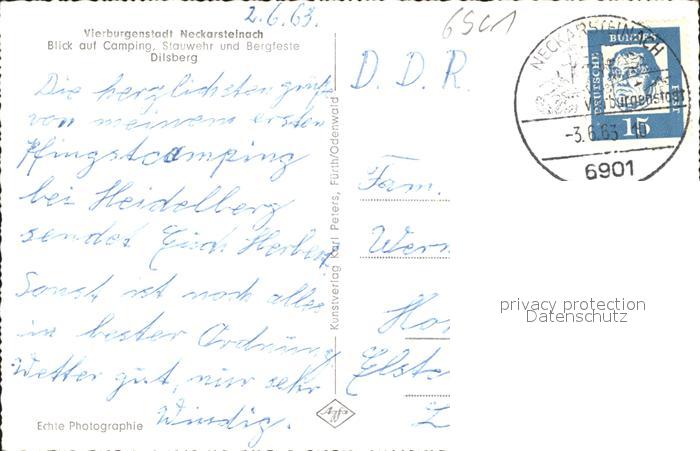 2.6.63.
6901
Vierburgenstadt Neckarsteinach
Blick auf Camping, Stauwehr und Bergfeste
Dilsberg
Die herzlichsten Grüße
von meinem ersten
Pfingstcamping
bei Heidelberg
sendet Euch Herbert
Sonst ist noch alles
in bester Ordnung
Wetter gut, nur sehr
Windig.
Echte Photographie
Kunstverlag Karl Peters, Fürth/Odenwald
Agfa
D. D. R.
Fam.
Wern
Ho
Elste
NECKARSTEINACH
Vierburgenstadt
-3.6.63-10
6901
DEUTSCHE BUNDES
15
privacy protection
Datenschutz